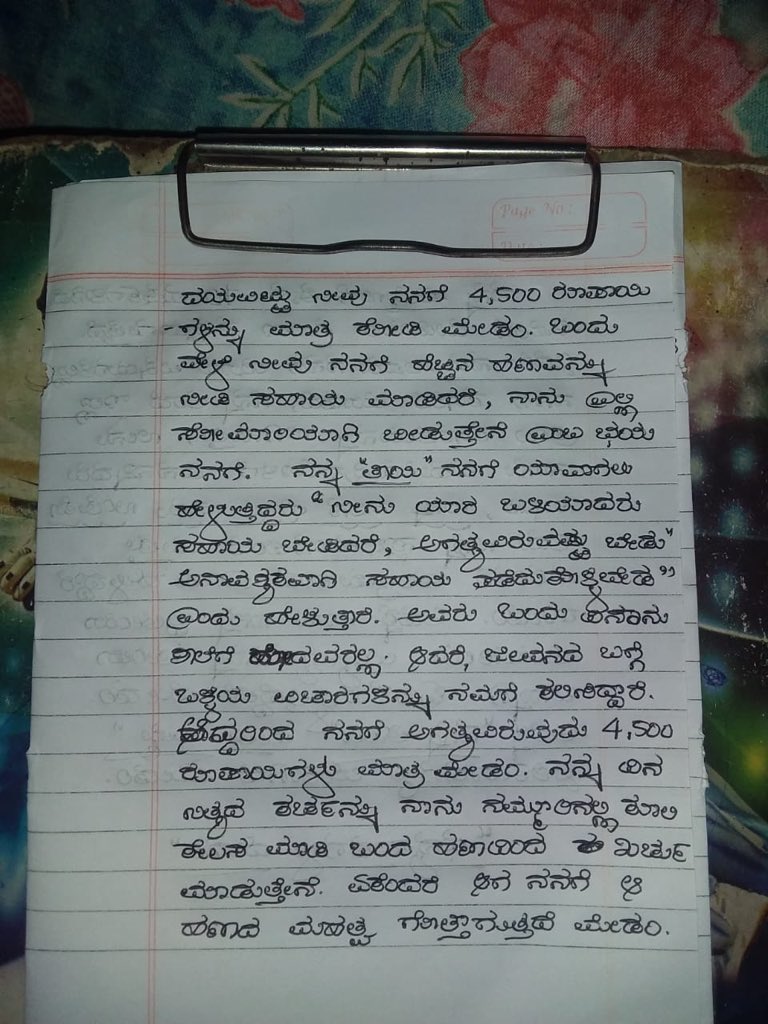 Page No:
ದಯವಿಟ್ಟು ನೀವು ನನಗೆ 4,500 ರೂಪಾಯಿ
-ಗಳನ್ನು ಮಾತ್ರ ಕೊಡಿ ಮೇಡಂ. ಒಂದು
ವೇಳೆ ನೀವು ನನಗೆ ಹೆಚ್ಚಿನ ಹಣವನ್ನು
ನೀಡಿ ಸಹಾಯ ಮಾಡಿದರೆ, ನಾನು ಎಲ್ಲಿ
ಸೋಮಾರಿಯಾಗಿ ಬೀಡುತ್ತೇನೆ ಎಂಬ ಭಯ
ನನಗೆ. ನನ್ನ "ತಾಯಿ" ನನಗೆ ಯಾವಾಗಲು
ಹೇಳುತ್ತಿದ್ದರು "ನೀನು ಯಾರ ಬಳಿಯಾದರು
ಸಹಾಯ ಬೇಡಿದರೆ, ಅಗತ್ಯವಿರುವಷ್ಟು ಬೇಡು"
ಅನಾವಶ್ಯಕವಾಗಿ ಸಹಾಯ ಪಡೆದುಕೊಳ್ಳಬೇಡ"
ಎಂದು ಹೇಳುತ್ತಾರೆ. ಅವರು ಒಂದು ದಿನಾನು
ಶಾಲೆಗೆ ಹೋದವರಲ್ಲ. ಆದರೆ, ಜೀವನದ ಬಗ್ಗೆ
ಒಳ್ಳೆಯ ವಿಚಾರಗಳನ್ನು ನಮಗೆ ಕಲಿಸಿದ್ದಾರೆ.
ಆದ್ದರಿಂದ ನನಗೆ ಅಗತ್ಯವಿರುವುದು 4,500
ರೂಪಾಯಿಗಳು ಮಾತ್ರ ಮೇಡಂ. ನನ್ನ ದಿನ
ನಿತ್ಯದ ಕರ್ಚನ್ನು ನಾನು ನಮ್ಮೂರಿನಲ್ಲಿ ಕೂಲಿ
ಕೆಲಸ ಮಾಡಿ ಬಂದ ಹಣದಿಂದ ಖರ್ಚು
ಮಾಡುತ್ತೇನೆ. ಏಕೆಂದರೆ ಆಗ ನನಗೆ ಆ
ಹಣದ ಮಹತ್ವ ಗೊತ್ತಾಗುತ್ತದೆ ಮೇಡಂ.